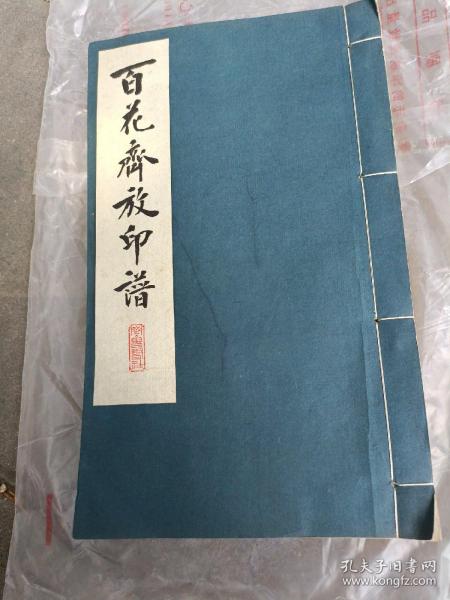 百花齊放印譜
孔夫子旧书网
www.kongfz.com